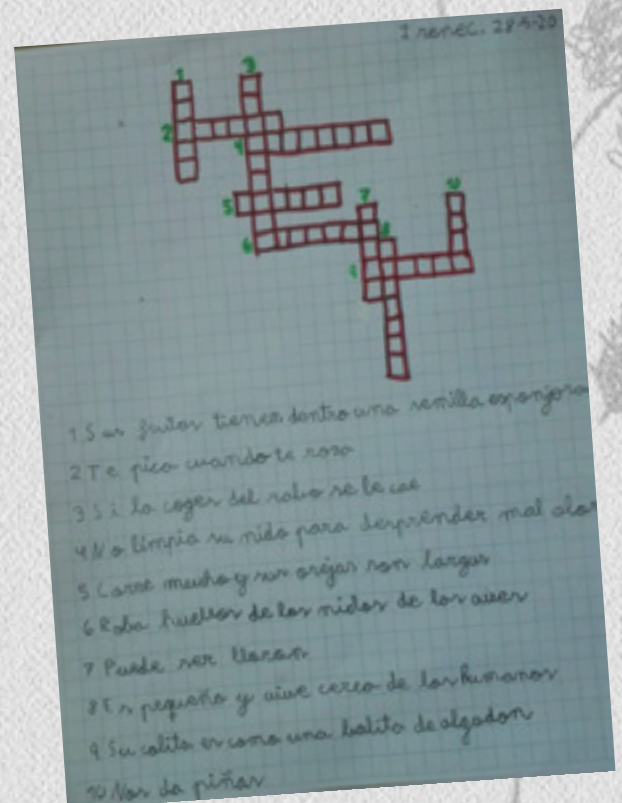 Irenec. 28-4-20
1
3
2
4
5
7
6
8
9
1 Sus frutos tienen dentro una semilla esponjosa
2 Te pica cuando te rosa
3 Si la coges del rabo se le cae
4 No limpia su nido para desprender mal olor
5 Corre mucho y sus orejas son largas
6 Roba huevos de los nidos de las aves
7 Puede ser lloron
8 Es pequeño y vive cerca de los humanos
9 Su colita es como una bolita de algodon
10 Nos da piñas